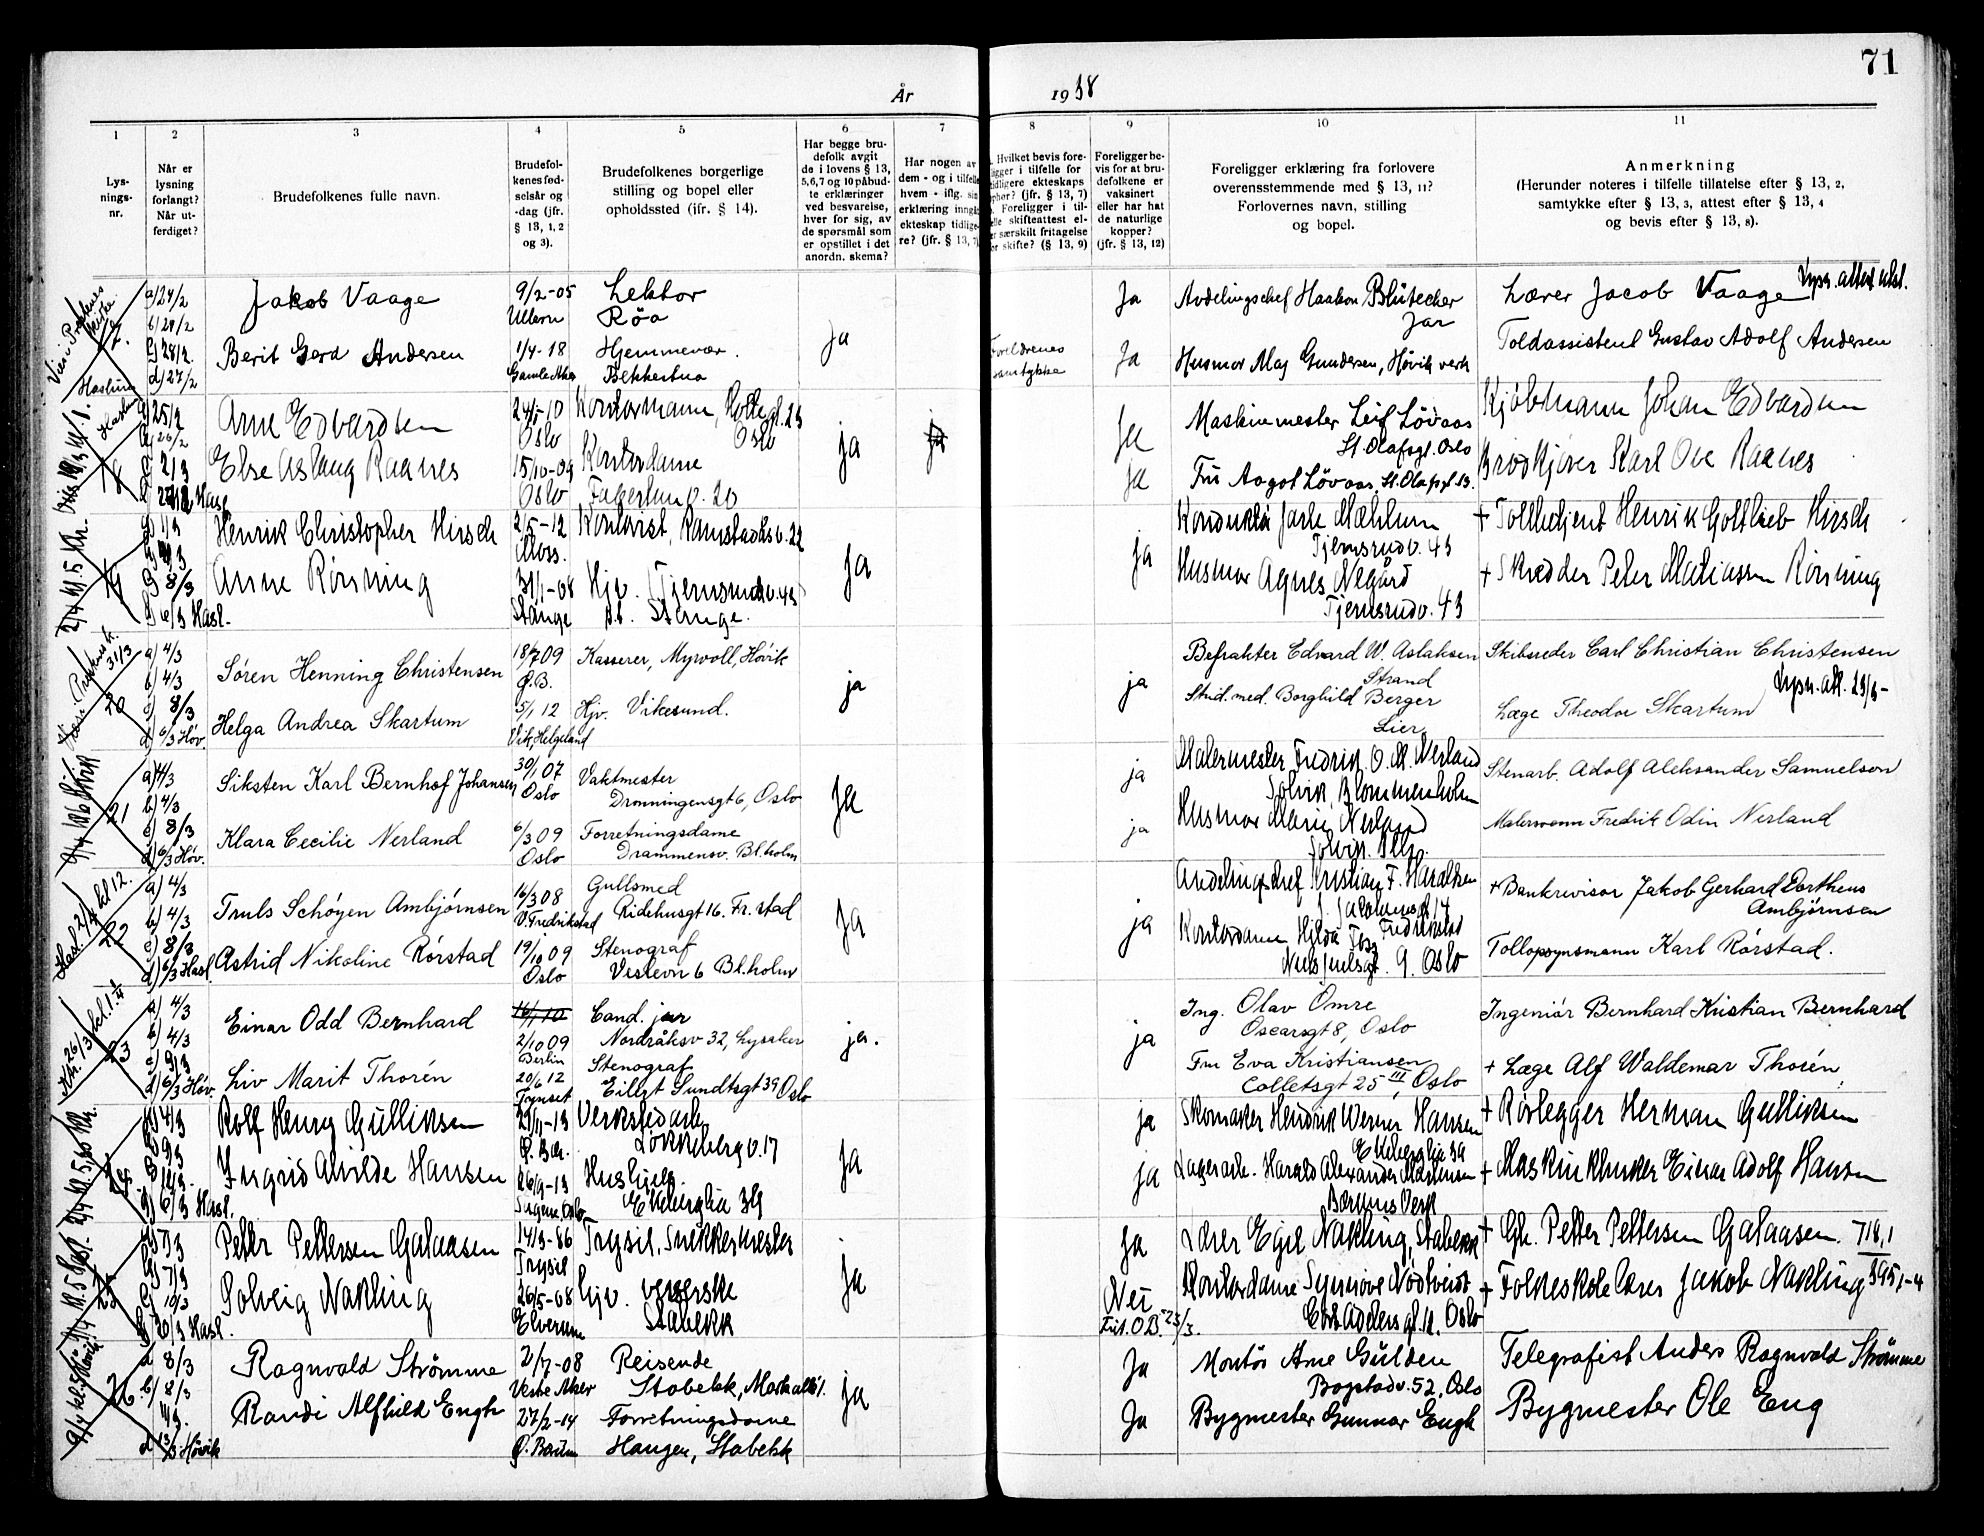 71
År 1938
1 2 3 4 5 6 7 8 9 10 11
Lys-
nings-
nr.
Når er
lysning
forlangt?
Når ut-
ferdiget?
Brudefolkenes fulle navn.
Brudefol-
kenes fød-
selsår og
-dag (jfr.
§ 13, 1, 2
og 3).
Brudefolkenes borgerlige
stilling og bopel eller
opholdssted (jfr. § 14).
Har begge bru-
defolk avgit
de i lovens § 13,
5,6,7 og 10 påbud-
te erklæringer
ved besvarelse,
hver for sig, av
de spørsmål som
er opstillet i det
anordn. skema?
Har nogen av
dem - og i tilfelle
hvem - iflg. sin
erklæring inngått
ekteskap tidlige-
re? (jfr. § 13, 7)
Hvilket bevis fore-
ligger i tilfelle for
tidligere ekteskaps
ophør? (jfr. § 13, 7)
Foreligger i til-
felle skifteattest el-
ler særskilt fritagelse
for skifte? (§ 13, 9)
Foreligger be-
vis for at bru-
defolkene er
vaksinert
eller har hat
de naturlige
kopper?
(jfr. § 13, 12)
Foreligger erklæring fra forlovere
overensstemmende med § 13, 11?
Forlovernes navn, stilling
og bopel.
Anmerkning
(Herunder noteres i tilfelle tillatelse efter § 13, 2,
samtykke efter § 13, 3, attest efter § 13, 4
og bevis efter § 13, 8).
a) 24/2 Jakob Vaage 9/2-05 Lektor Ja Avdelingschef Haakon Blütecher Lærer Jacob Vaage Lysn. attest utst.
Ullern Røa Ja Jar
c) 28/2 Berit Gerd Andersen 1/4-18 Hjemmevær. Foreldrenes Ja Husmor Mag Gundersen, Høvik verk Toldassistent Gustav Adolf Andersen
d) 27/2 Gamle Aker Bekkestua samtykke
Haslum
25/2 Arne Edvardsen 24/5-10 Kontormann, Holtegt. 23 Ja Maskinmester Leif Løvaas Kjøbmann Johan Edvardsen
26/2 Oslo Oslo ja St. Olafsgt. Oslo
2/3 Else Aslaug Raanes 15/10-09 Kontordame Ja Fru Aagot Løvaas, St. Olafsgt. 13. Brødkjører Karl Ove Raanes
Hasl. Oslo Fagerlun v. 20
1/3 Henrik Christopher Hirsch 2/5-12 Kontorist, Ramstadås v. 22 Konduktør Jarle Mæhlum + Tollbetjent Henrik Gottlieb Hirsch
Moss. Ja ja Tjernsrudv. 43
8/3 Anne Rønning 31/1-08 Hjv. Tjernsrudv. 43 Husmor Agnes Negård + Skredder Peter Matiassen Rønning
d) 6/3 Hasl. Stange p.t. Stange. Tjernsrudv. 43
a) 4/3 Søren Henning Christensen 18/7 09 Kasserer, Myrvoll, Høvik Befrakter Edvard W. Aslaksen Skibsreder Carl Christian Christensen
b) 4/3 Ø.B. ja ja Strand
20 c) 8/3 Helga Andrea Skartum 5/1 12 Hjv. Vikesund. Stud. med. Borghild Berger Læge Theodor Skartum
d) 6/3 Høv. Vik, Helgeland Lier.
a) 4/3 Siksten Karl Bernhof Johansen 30/1 07 Vaktmester ja Malermester Fredrik O. M. Nerland Stenarb. Adolf Aleksander Samuelson
21 b) 4/3 Oslo Dronningensgt 6, Oslo Ja Solvik, Blommenholm
c) 8/3 Klara Cecilie Nerland 6/3 09 Forretningsdame ja Husmor Marie Nerland Malersvenn Fredrik Odin Nerland
d) 6/3 Høv. Oslo Drammensv. Bl.holm
a) 4/3 Truls Schøyen Ambjørnsen 16/3 08 Gullsmed Avdelingschef Kristian F. Haraldsen + Bankrevisor Jakob Gerhard Dorthens
22 b) 4/3 V. Fredrikstad Ridehusgt 16. Fr. stad Ja ja Fredrikstad Ambjørnsen
c) 8/3 Astrid Nikoline Rørstad 19/10 09 Stenograf Kontordame Hjelda Foss Tollopsynsmann Karl Rørstad.
d) 6/3 Hasl. Oslo Veslevn 6 Bl.holm Niels Juelsgt. 9. Oslo
a) 4/3 Einar Odd Bernhard 16/1 10 Cand. jur Ing. Olav Omre Ingeniør Bernhard Kristian Bernhard
23 b) 4/3 2/10 09 Nordråksv 32, Lysaker ja. ja Oscarsgt 8, Oslo
Berlin
c) 9/3 Liv Marit Thorén 20/6 12 Stenograf Fru Eva Kristiansen + Læge Alf Waldemar Thorén
d) 6/3 Høv. Tynset Eilert Sundtsgt 39 Oslo Colletsgt 25 III, Oslo
4/3 Rolf Henry Gulliksen 29/11-13 Verkstedarb. ja Skomaker Hendrik Werner Hansen + Rørlegger Herman Gulliksen
Ø. Bær. Løkkeberg v. 17 Ja Ekeberglia 39
Ingrid Alvilde Hansen 26/9-13 Hushjelp. ja Lagerarb. Harald Alexander Martinsen + Maskinklinker Einar Adolf Hansen
6/3 Hasl. Sagene, Oslo Ekeberglia 39 Bærums Verk
7/3 Petter Pettersen Galaasen 14/3-86 Trysil, Snekkermester Ja Lærer Egil Nakling, Stabekk + Gh. Petter Pettersen Galaasen. 718,1
25 7/3 Trysil Ja
10/3 Solveig Nakling 26/5-08 Hjv. Nei Kontordame Synnøve Nødtveidt + Folkeskolelærer Jakob Nakling 395,-4
6/3 Hasl. Elverum Stabekk 23/3. Cort Adelersgt. 12. Oslo
8/3 Ragnvald Strømme 2/7-08 Reisende Ja Montør Arne Gulden Telegrafist Anders Ragnvald Strømme
26. b) 8/3 Vestre Aker Stabekk, ja Bogstadv. 52, Oslo
Randi Alfhild Engh 27/2-14 Forretningsdame Ja Bygmester Gunnar Engh Bygmester Ole Eng
d 13/3 Høvik Ø. Bærum Haugen, Stabekk